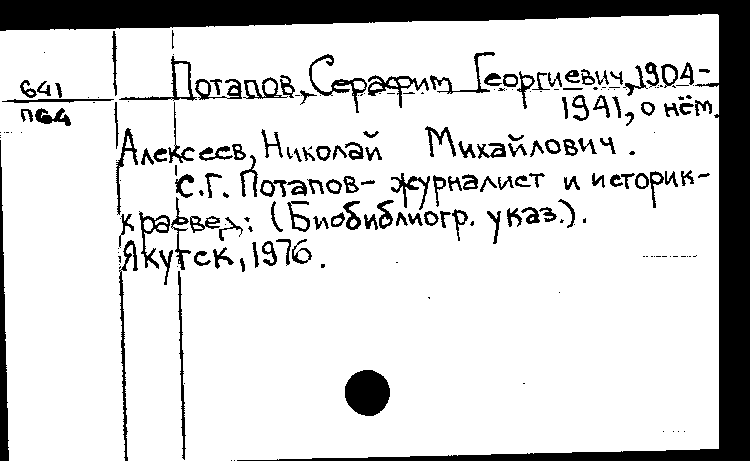 641
П64
Потапов, Серафим Георгиевич, 1904-
1941, о нём.
Алексеев, Николай Михайлович.
С.Г. Потапов- журналист и историк-
краевед: (Биобиблиогр. указ.).
Якутск, 1976.